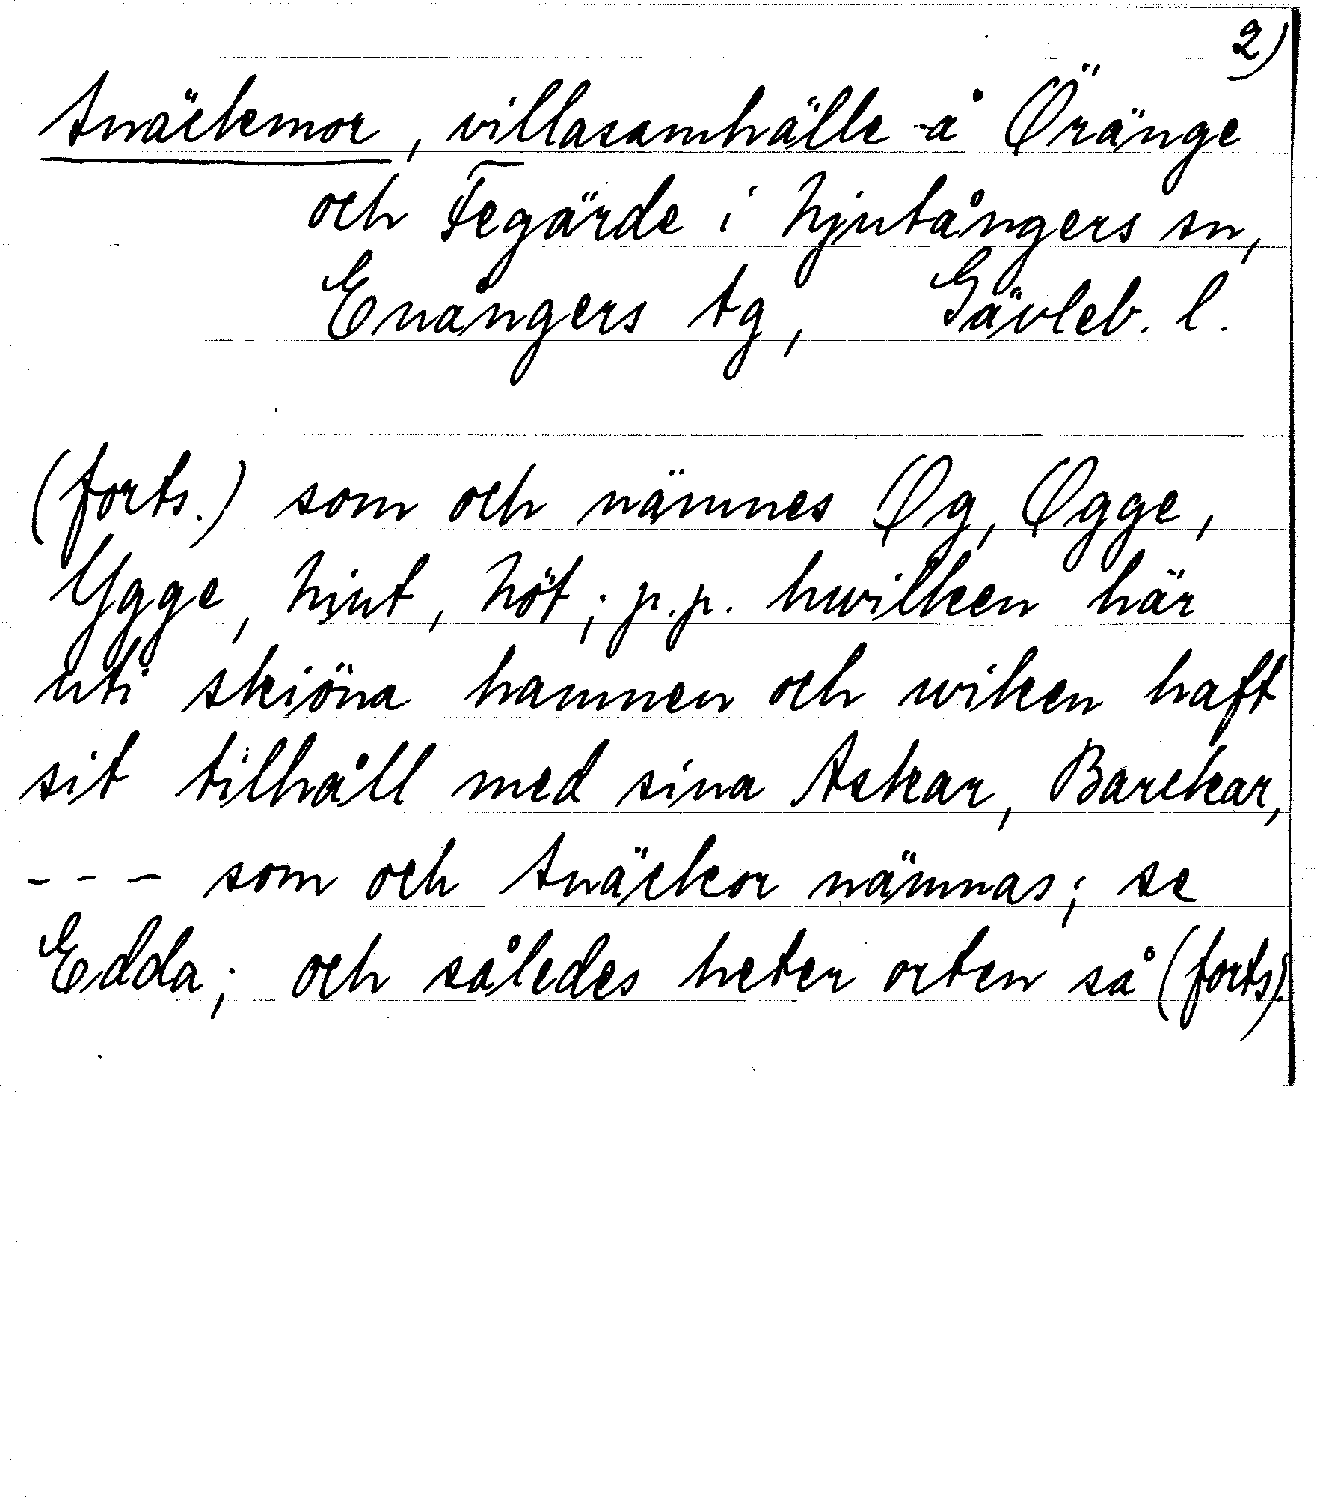 2)
Snäckmor, villasamhälle å Öränge
och Tegärde i Njutångers sn,
Enångers tg, Gävleb. l.
(forts.) som och nämnes Øg, Øgge,
Ygge, Niut, Nöt; p.p. hwilken här
uti skiöna hamnen och wiken haft
sit tilhåll med sina Askar, Barckar,
--- som och Snäckor nämnas; se
Edda; och således heter orten så (forts).